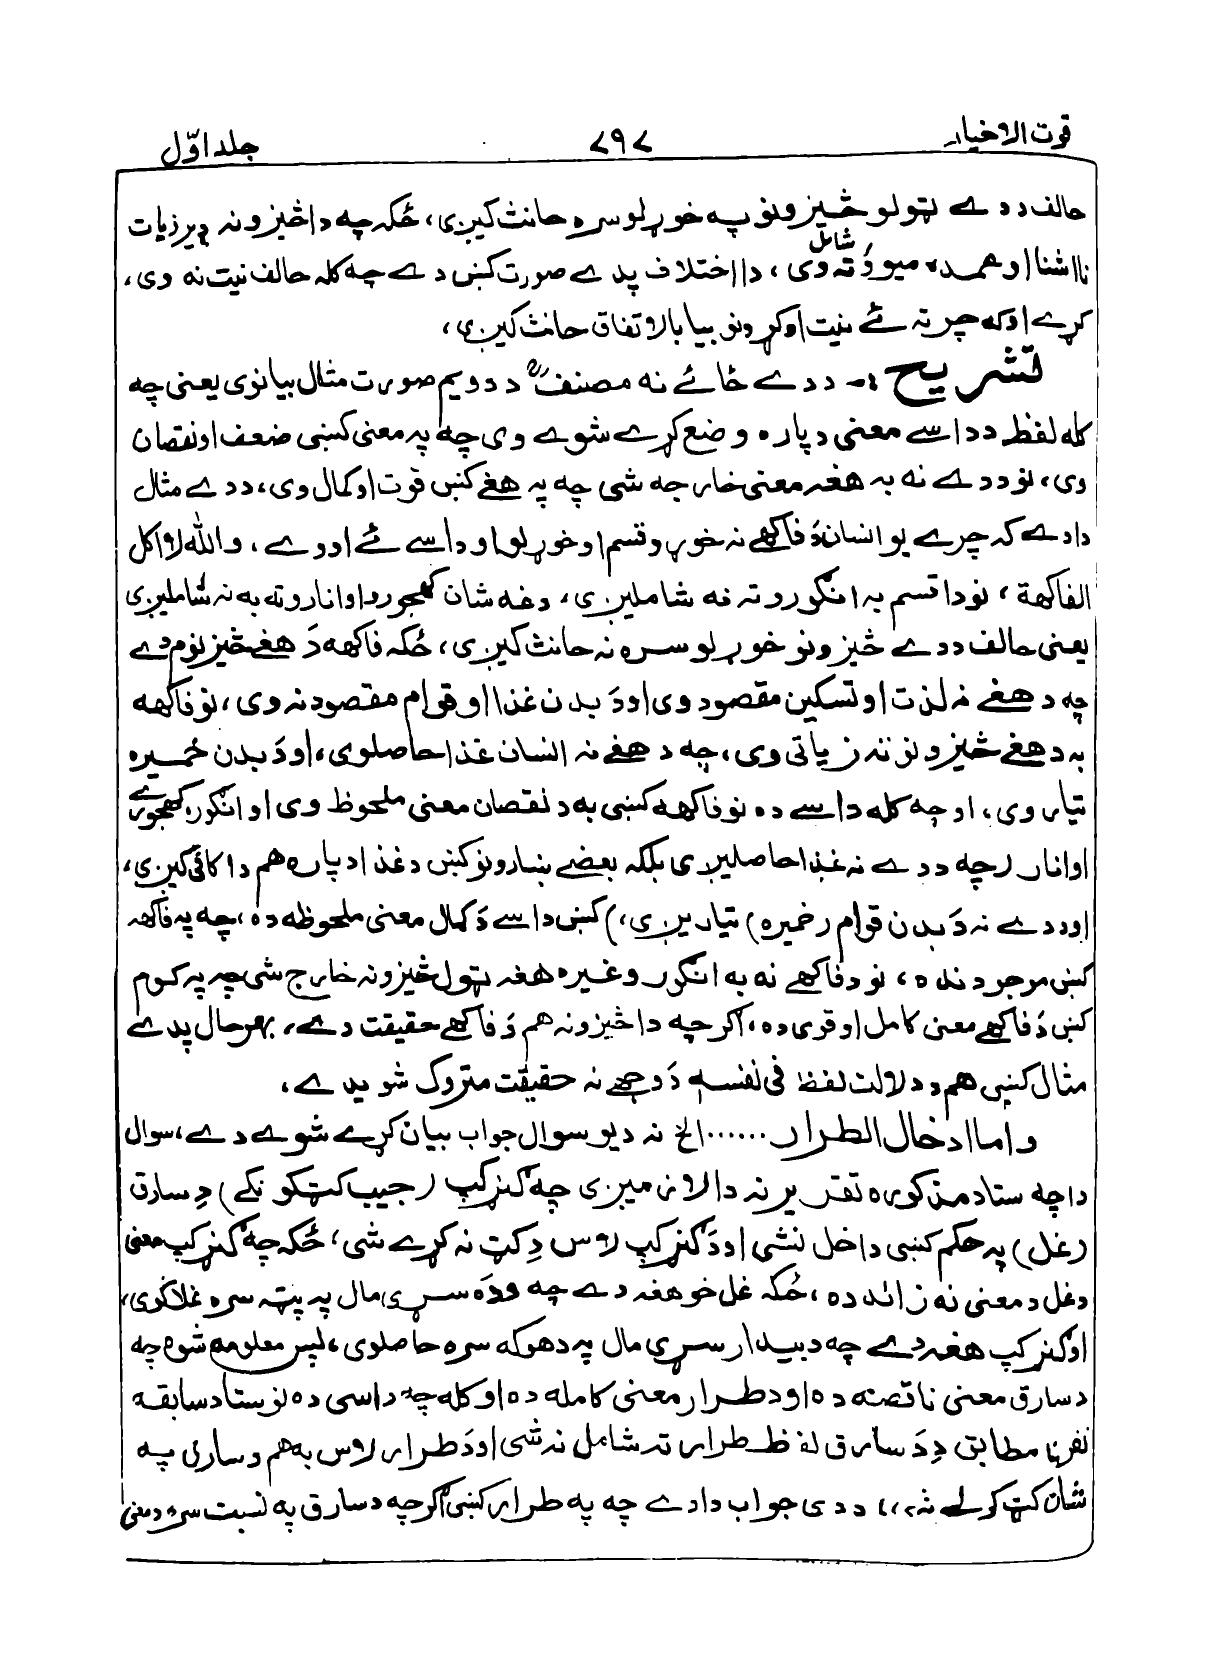 قوت الاخیار ۲۹۷ جلد اوّل
حالف ددے ټولو څیزونو په خوړلو سره حانث کیږی، ځکه چه دا څیزونه ډیر زیات
نااشنا او عمده میووُ ته شامل وی، دا اختلاف پدے صورت کښ دے چه کله حالف نیت نه وی،
کړے اوکه چرته ئے نیت اوکړو نو بیا بالاتفاق حانث کیږی،
تشریح :- ددے ځائے نه مصنفؒ ددویم صورت مثال بیانوی یعنی چه
کله لفظ دداسے معنی دپاره وضع کړے شوے وی چه په معنی کښی ضعف او نقصان
وی، نو ددے نه به هغه معنی خارجه شی چه په هغے کښ قوت او کمال وی، ددے مثال
دادے که چرے یو انسان دَ فاکهے نه خوړو قسم اوخوړلو او داسے ئے اووے، والله لا اکل
الفاکهة، نو دا قسم به انګورو ته نه شاملیږی، دغه شان کهجورو او انارو ته به نه شاملیږی
یعنی حالف ددے څیزونو خوړلو سره نه حانث کیږی، ځکه فاکهه دَ هغے څیز نوم دے
چه د هغے نه لذت او تسکین مقصود وی او دَ بدن غذا او قوام مقصود نه وی، نو فاکهه
به دهغے څیزونو نه زیاتی وی، چه دهغے نه انسان غذا حاصلوی، او دَ بدن خمیره
تیاره وی، او چه کله داسے ده نو فاکهه کښی به د نقصان معنی ملحوظ وی او انګور، کهجورے
او انار رچه ددے نه غذا حاصلیږی بلکه بعضے ښارونو کښ دغذا دپاره هم دا کافی کیږی،
او ددے نه دَ بدن قوام رخمیره) تیاریږی،) کښ داسے دَ کمال معنی ملحوظه ده، چه په فاکهه
کښی موجود نده، نو د فاکهے نه به انګور وغیره هغه ټول څیزونه خارج شی چه په کوم
کښ دَ فاکهے معنی کامل او قوی ده، اګرچه دا څیزونه هم دَ فاکهے حقیقت دے، بهرحال پدے
مثال کښی هم د دلالت لفظ فی نفسه دَ وجے نه حقیقت متروک شویدے،
واما ادخال الطرار......الخ نه دیو سوال جواب بیان کړے شوے دے، سوال
داچه ستاد مذکوره تقریر نه دالازمیږی چه ګنډکپ رجیب کټ کونکے) دِ سارق
رغل) په حکم کښی داخل نشی او دَ ګنډکپ لاس دِ کټ نه کړے شی، ځکه چه ګنډکپ معنی
دغل دمعنی نه زائد ده، ځکه غل خو هغه دے چه وده سړی مال په پټه سره غلاکوی،
او ګنډکپ هغه دے چه دبیدار سړی مال په دهوکه سره حاصلوی، پس معلومه شوه چه
دسارق معنی ناقصه ده او دطرار معنی کامله ده او کله چه داسی ده نو ستا دسابقه
مطابق دِ دَ سارق لفظ طرار ته شامل نه شی او دَ طرار لاس به هم د سارق په
شان کټ کولے نه، ددی جواب دادے چه په طرار کښی اګرچه دسارق په نسبت سره دمعنی